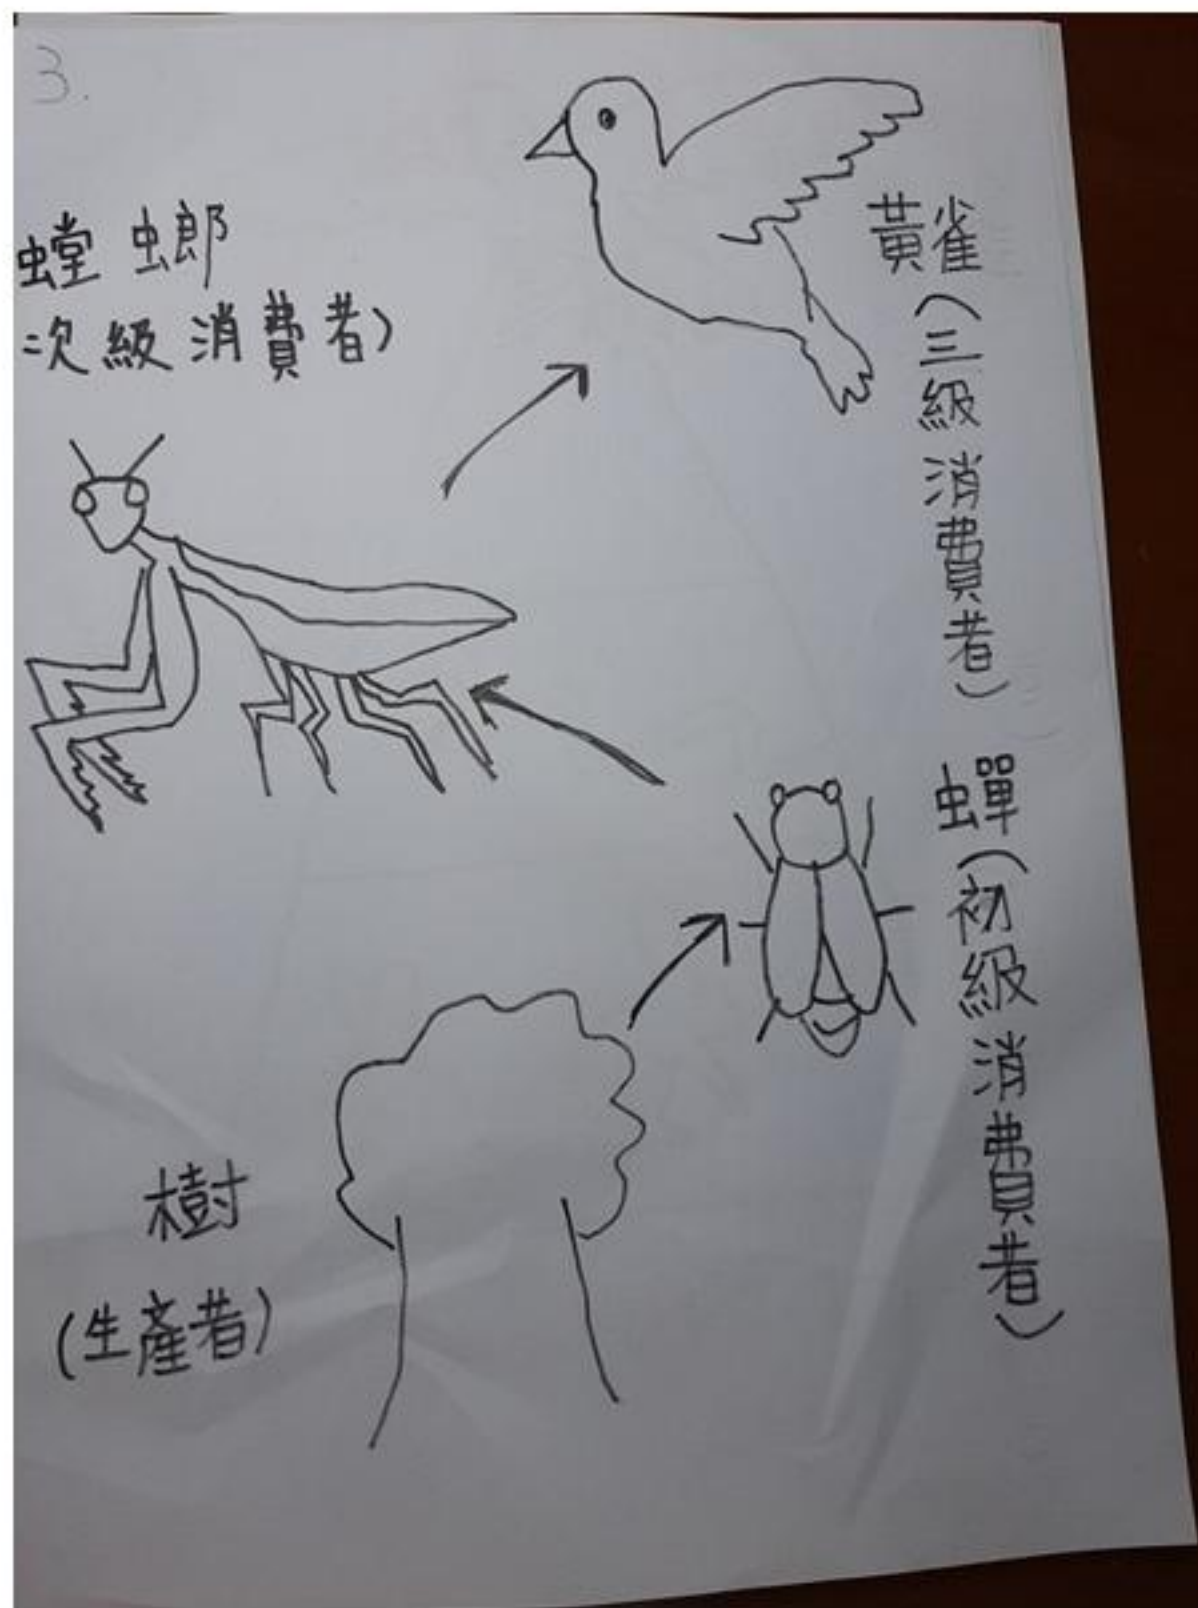 3.
螳螂
次級消費者)
黃雀(三級消費者)
蟬(初級消費者)
樹
(生產者)